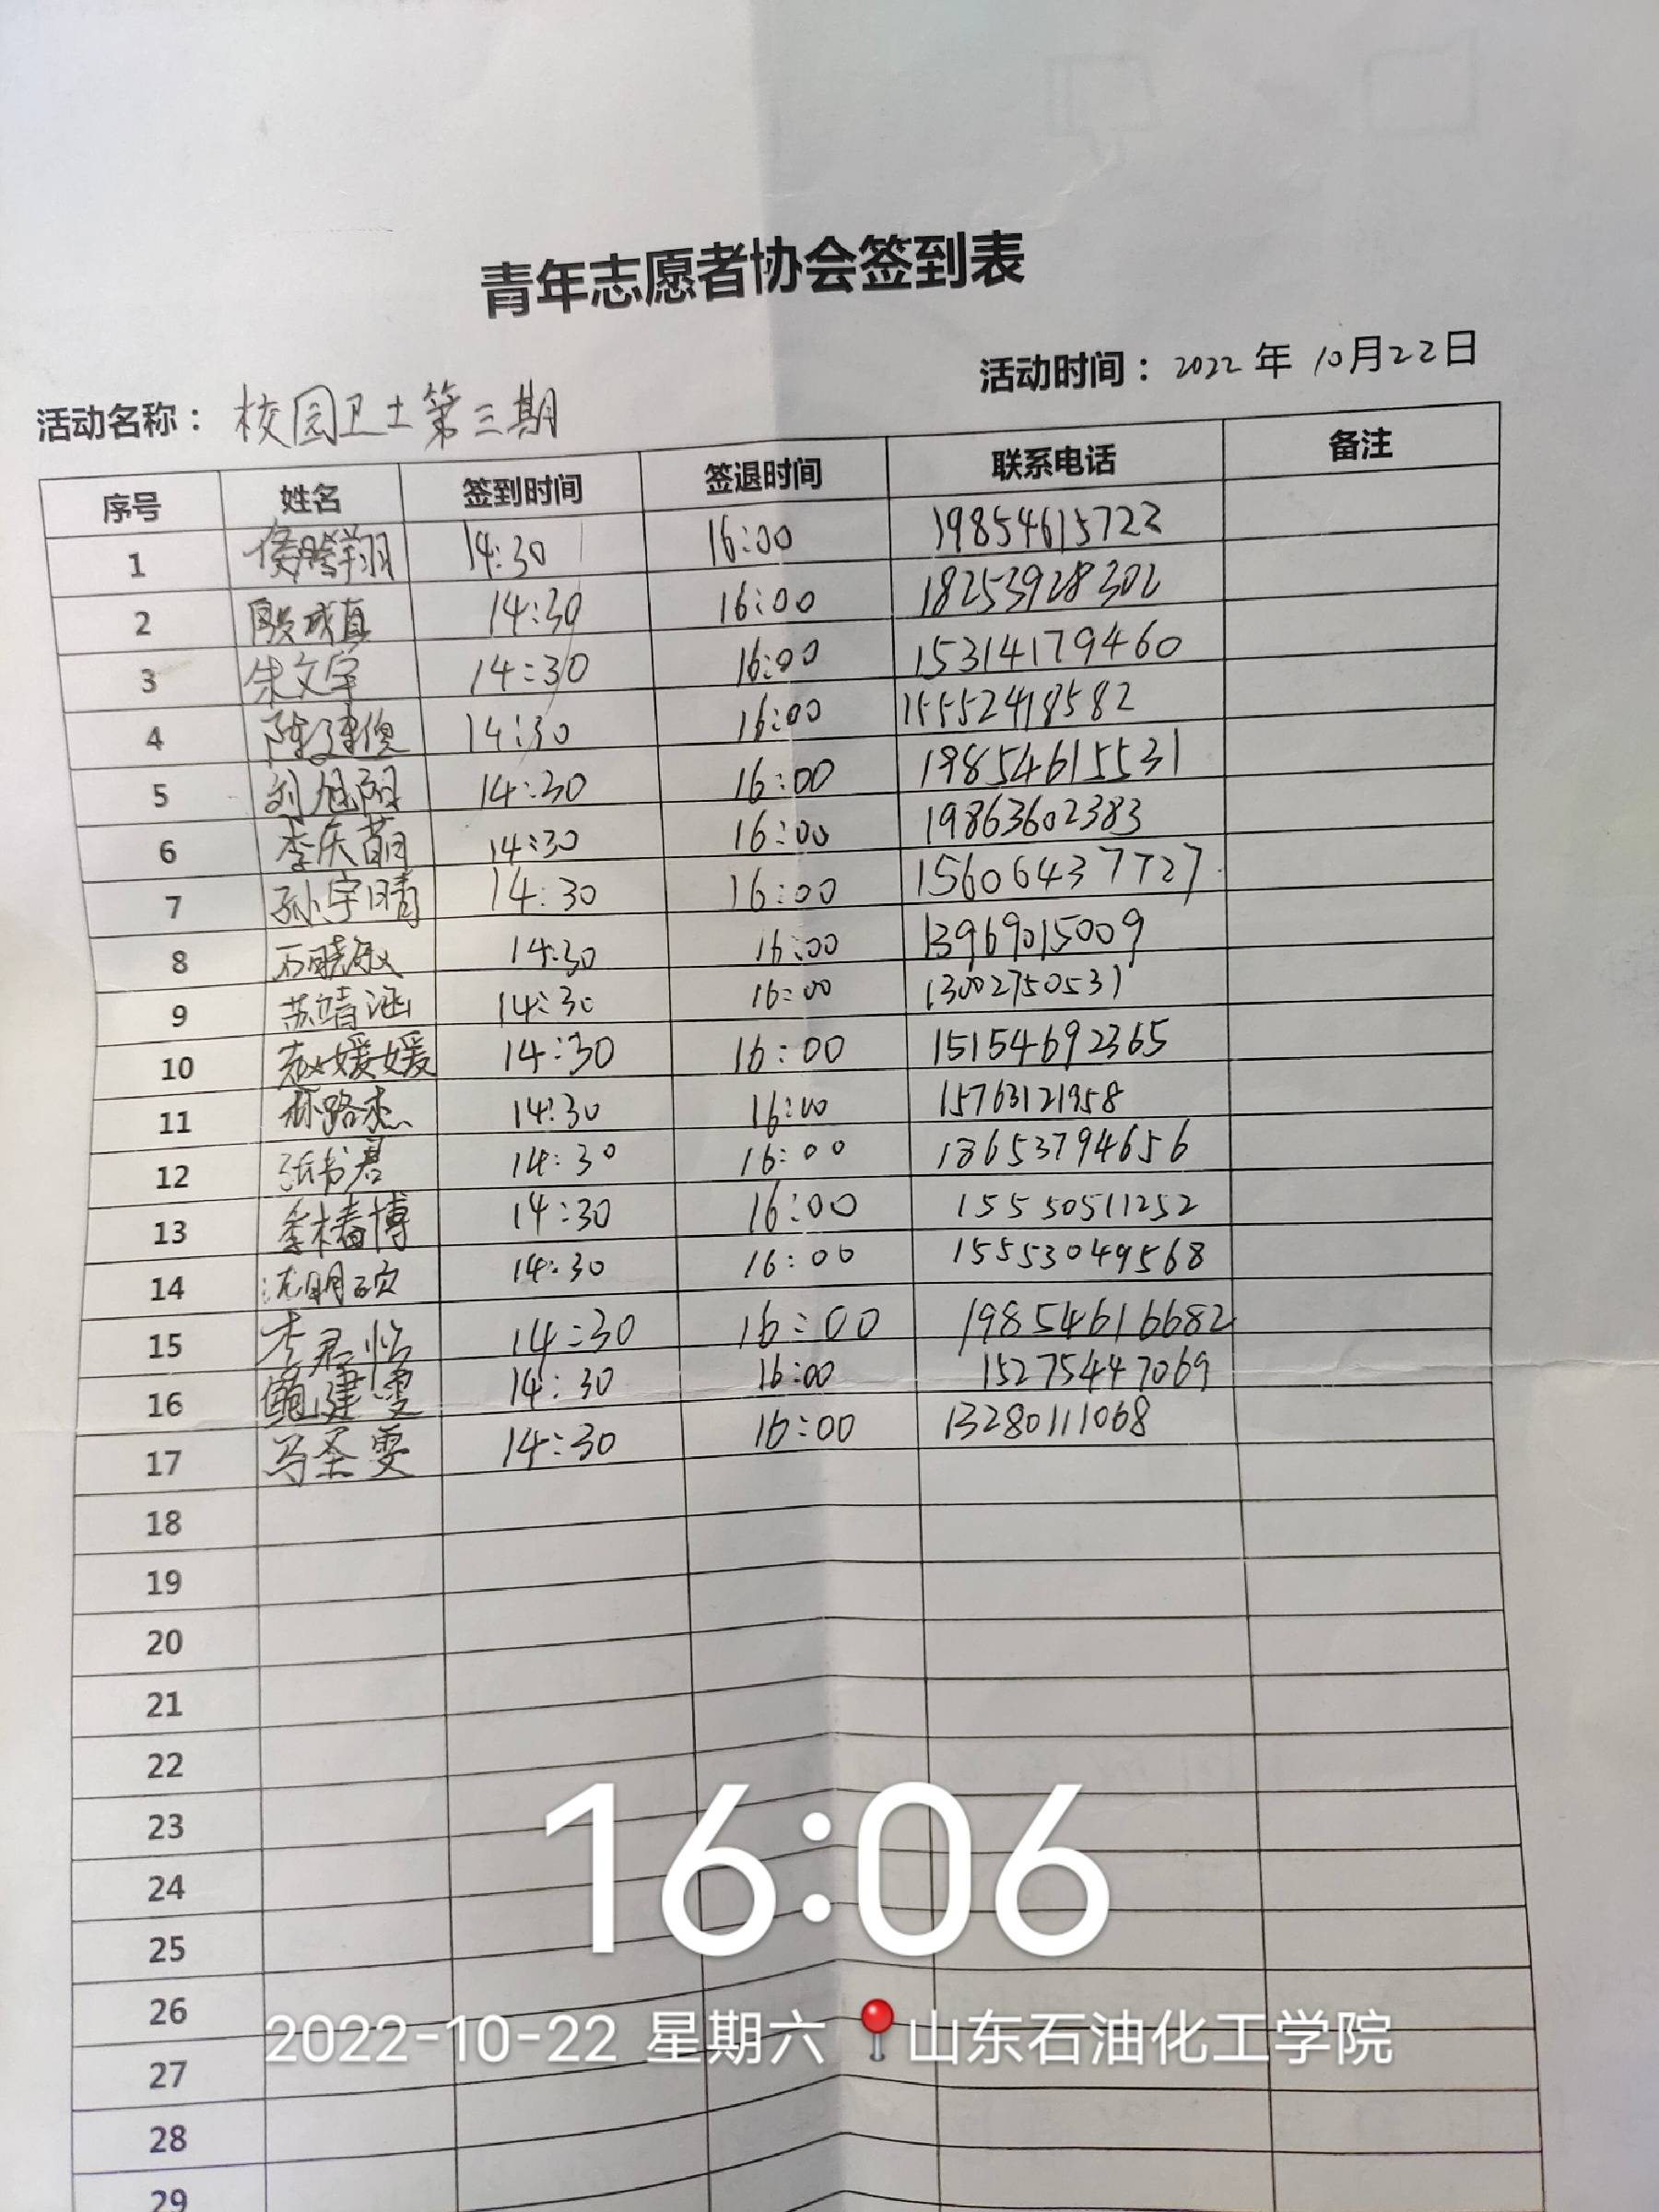 青年志愿者协会签到表
活动时间：2022年10月22日
活动名称：校园卫士第三期
序号 姓名 签到时间 签退时间 联系电话 备注
1 侯腾翔 14:30 16:00 19854615722
2 殷成真 14:30 16:00 18253928302
3 朱文宇 14:30 16:00 15314179460
4 陈建俊 14:30 16:00 15552418582
5 刘旭阳 14:30 16:00 19854615531
6 李庆萌 14:30 16:00 19863602383
7 孙宇晴 14:30 16:00 15606437727
8 石晓敏 14:30 16:00 13969015009
9 苏靖涵 14:30 16:00 13002750531
10 赵媛媛 14:30 16:00 15154692365
11 路杰 14:30 16:00 15763121958
12 张书君 14:30 16:00 18653794656
13 李椿博 14:30 16:00 15550511252
14 沈明 14:30 16:00 15553049568
15 李君怡 14:30 16:00 19854616682
16 甄建雯 14:30 16:00 15275447069
17 马圣雯 14:30 16:00 13280111068
18
19
20
21
22
23
24
25
26
27
28
29
16:06
2022-10-22 星期六 山东石油化工学院